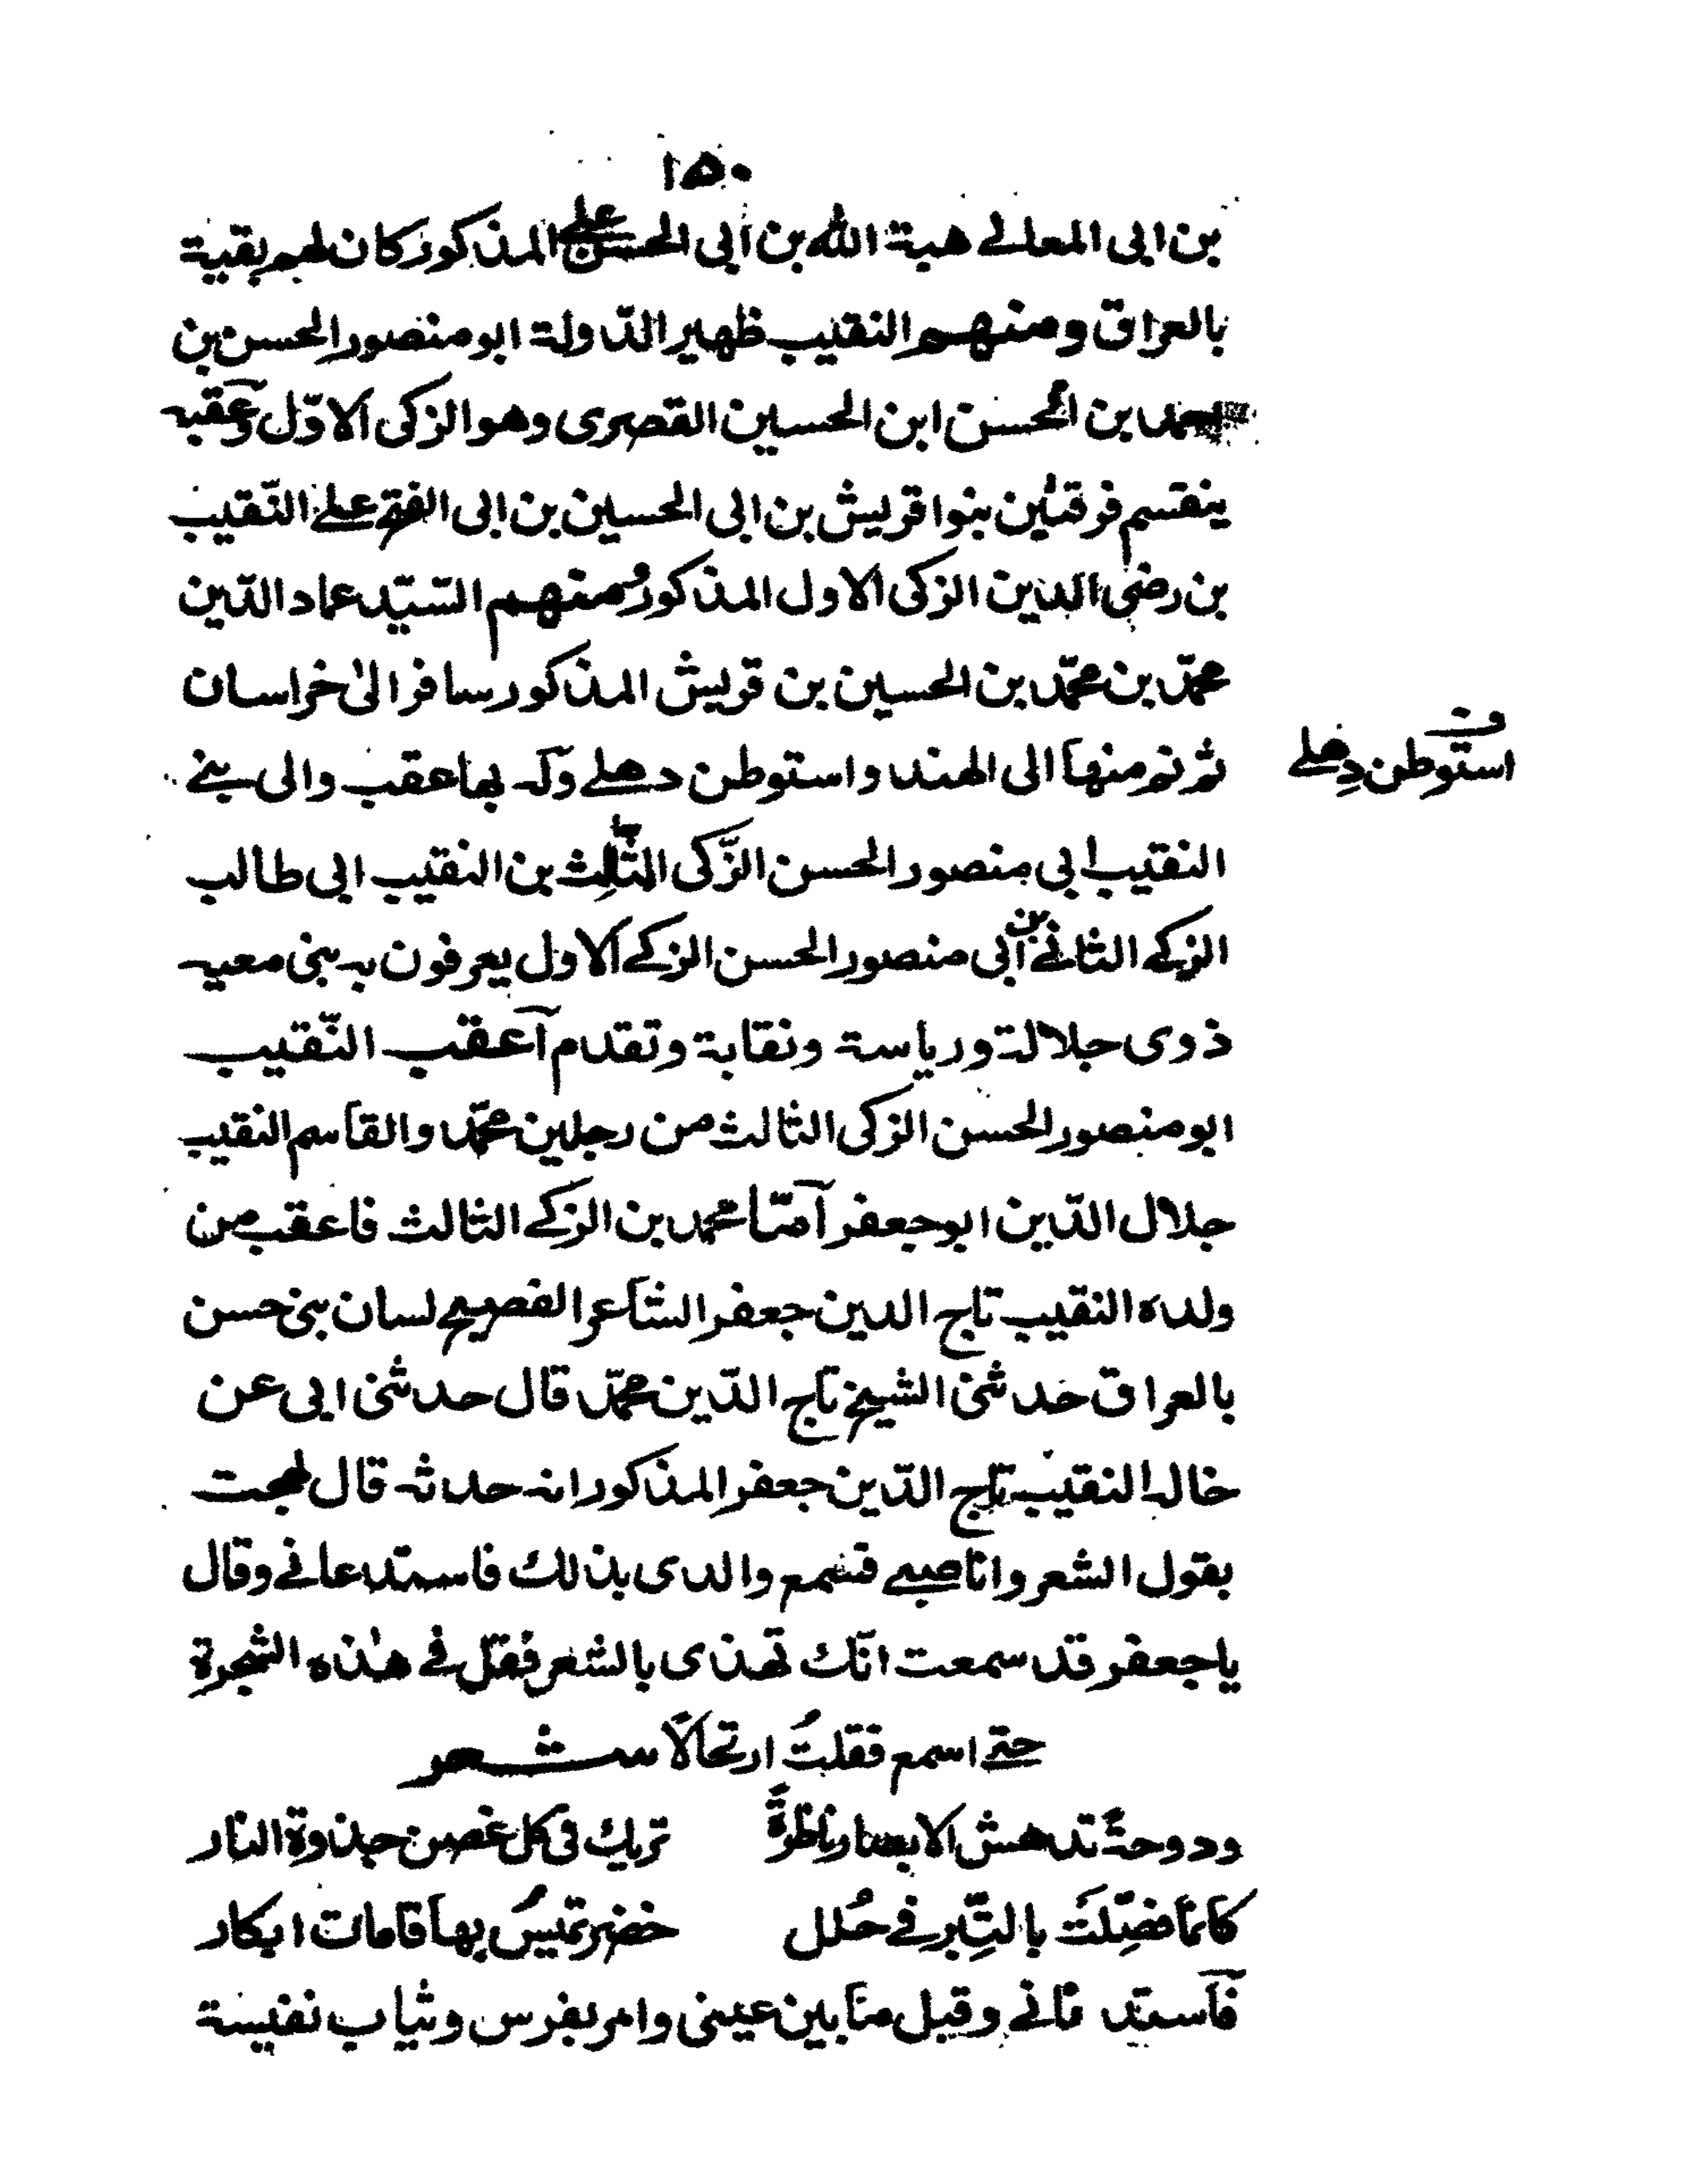 ١٥٠
بن ابى المعالے هبة الله بن ابى الحسن علے المذكور كان لهم بقية
بالعراق ومنهم النقيب ظهير الدّولة ابو منصور الحسن بن
احمد بن الحسن ابن الحسين القصرى وهو الزكى الاوّل وعقبه
ينقسم فرقتين بنوا قريش بن ابى الحسين بن ابى الفتح علے النّقيب
بن رضى الدين الزكى الاول المذكور ومنهم السّيّد عماد الدّين
محمّد بن محمّد بن الحسين بن قريش المذكور سافر الىٰ خراسان
ثم منها الى الهند واستوطن دهلے وله بها عقب والى بنے
ف
استوطن دهلے
النقيب ابى منصور الحسن الزّكى الثّالث بن النقيب ابى طالب
الزكے الثانے بن ابى منصور الحسن الزكے الاول يعرفون به بنى معيه
ذوى جلالة ورياسة ونقابة وتقدم آعقب النّقيب
ابو منصور الحسن الزكى الثالث من رجلين محمّد والقاسم النقيب
جلال الدّين ابو جعفر آمّا محمد بن الزكے الثالث فاعقب من
ولده النقيب تاج الدين جعفر الشاعر الفصيح لسان بنى حسن
بالعراق حدثنى الشيخ تاج الدّين محمّد قال حدثنى ابى عن
خاله النقيب تاج الدّين جعفر المذكور انه حدثه قال لهجت
بقول الشعر وانا صبے فسمع والدى بذلك فاستدعانے وقال
يا جعفر قد سمعت انّك تهذى بالشعر فقل فے هٰذه الشجرة
حتے اسمع فقلتُ ارتحالًا شعر
ودوحةً تدهش الابصار ناظرةً تريك فى كل غصن جذوة النار
كانما فصّلت بالتِّبر فے حُلل خضر تميسُ بها قامات ابكار
فآستدنانے وقبل منا بين عينى وامر بفرس وثياب نفيسة